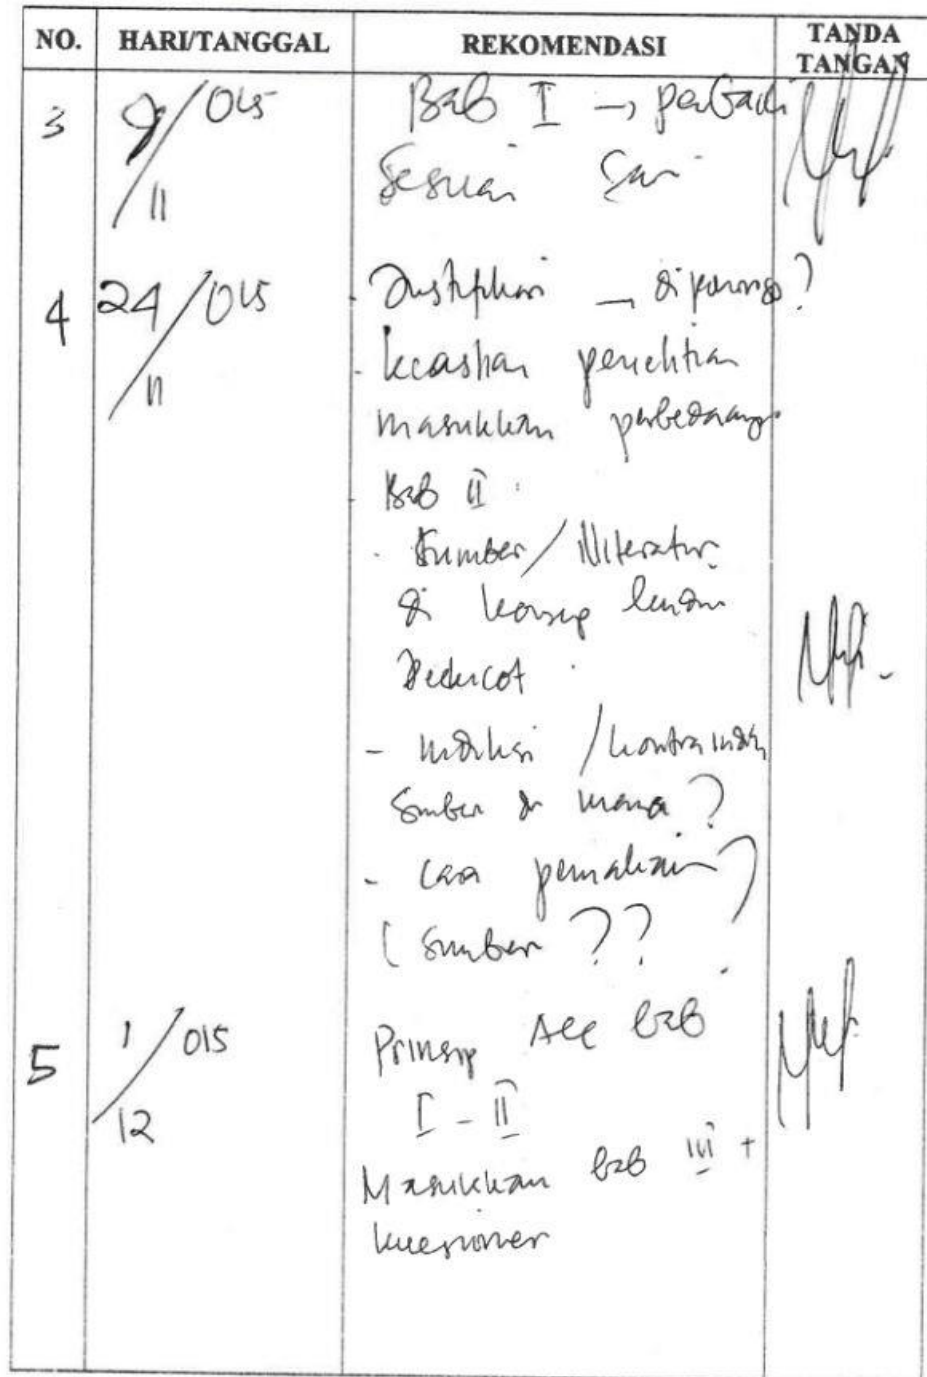 NO. HARI/TANGGAL REKOMENDASI TANDA TANGAN
3 9/11 015 Bab I → perbaiki
sesuai
4 24/11 015 - Justifikasi →
- keaslian penelitian
masukkan perbedaannya
- Bab II
- Sumber / literatur
di konsep
- indikasi / kontraindikasi
sumber dr mana?
- cara pemakaian?
(sumber ??
5 1/12 015 Prinsip Acc bab
I - II
Masukkan bab III +
kuesioner